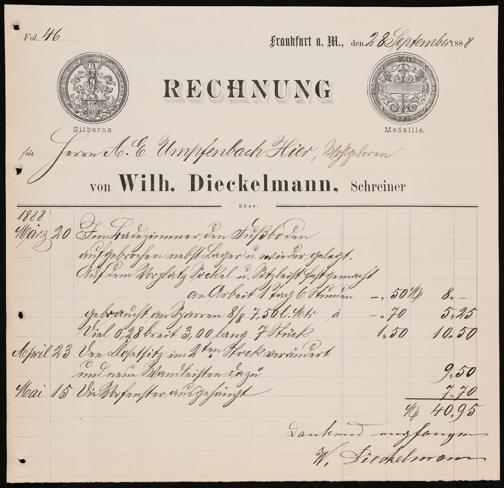 Fol. 46
Frankfurt a. M., den 28 September 1888
RECHNUNG
Silberne Medaille.
für Herrn A. E. Umpfenbach Hier, Wohlgeboren
von Wilh. Dieckelmann, Schreiner
über:
1888
März 20 Im Badezimmer den Fußboden
aufgebrochen nebst Lager u. wieder gelegt.
Auf dem Vorplatz Sockel u. festgemacht
an Arbeit 1 Tag 6 Stunden -. 50 8. -
gebraucht an Sparren 8/8 7,50 à -. 70 5.25
0,28 breit 3,00 lang 7 Stück 1.50 10.50
April 23 Den Closetsitz im 2ten Stock verändert
und neue Wandleisten dazu 9.50
Mai 15 Die Vorfenster ausgehängt 7.70
40.95
Dankend empfangen
W. Dieckelmann